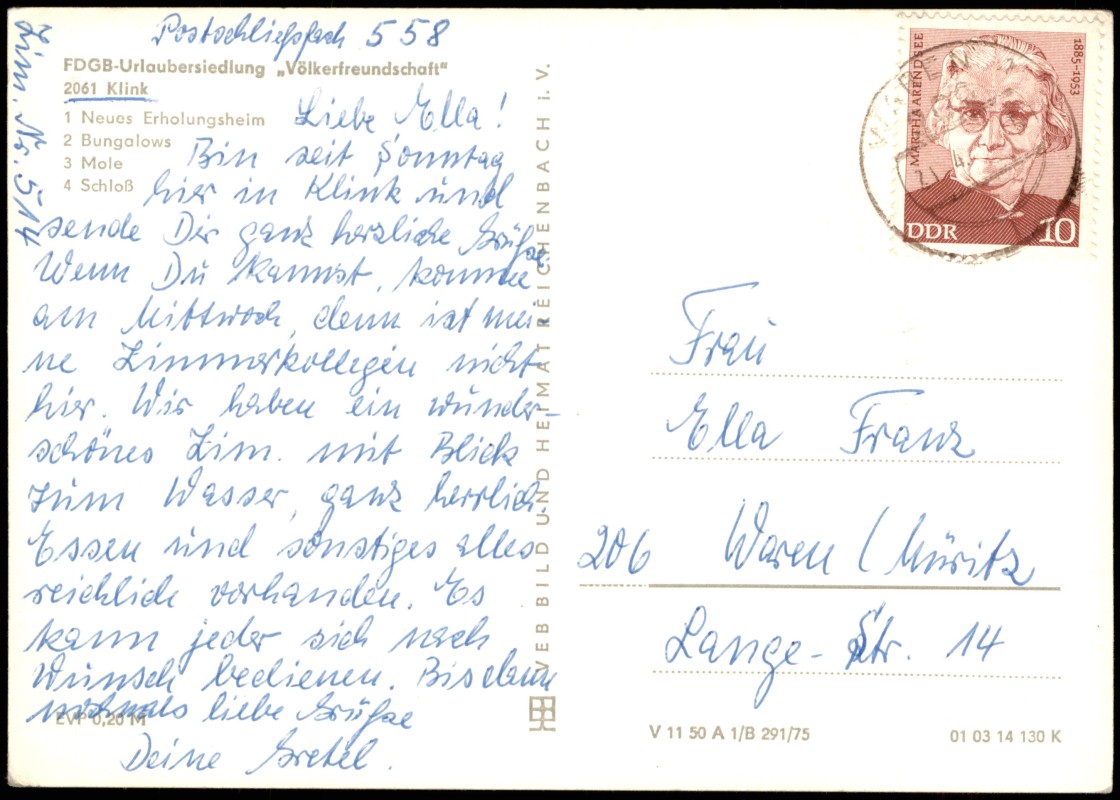 Postschließfach 558
Zim. Nr. 514
FDGB-Urlaubersiedlung „Völkerfreundschaft"
2061 Klink
1 Neues Erholungsheim
2 Bungalows
3 Mole
4 Schloß
Liebe Ella!
Bin seit Sonntag
hier in Klink und
sende Dir ganz herzliche Grüße.
Wenn Du kannst, komme
am Mittwoch, denn ist mei-
ne Zimmerkollegin nicht
hier. Wir haben ein wunder-
schönes Zim. mit Blick
zum Wasser, ganz herrlich.
Essen und sonstiges alles
reichlich vorhanden. Es
kann jeder sich nach
Wunsch bedienen. Bis dann
nochmals liebe Grüße
Deine Gretel.
EVP 0,20 M
VEB BILD UND HEIMAT REICHENBACH i. V.
MARTHA ARENDSEE
1885-1953
DDR 10
WAREN
Frau
Ella Franz
206 Waren (Müritz
Lange-Str. 14
V 11 50 A 1/B 291/75
01 03 14 130 K